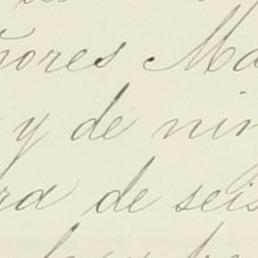 ñores Ma
y de nin
ra de seis